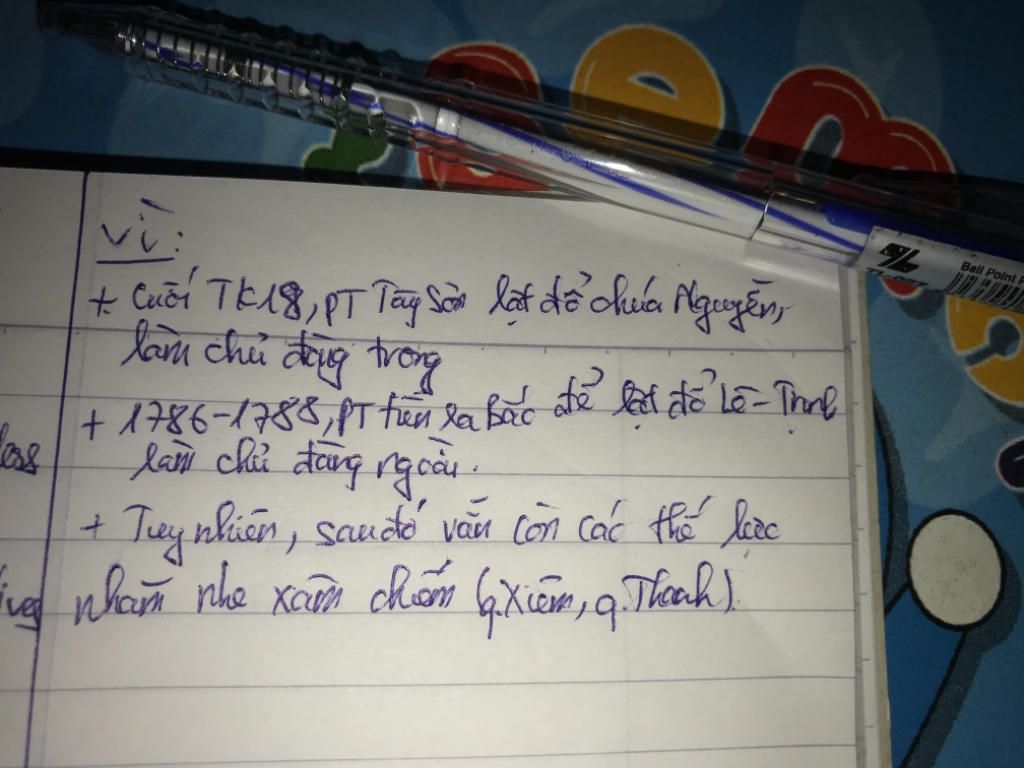 Vì:
+ Cuối TK18, PT Tây Sơn lật đổ chúa Nguyễn,
làm chủ đàng trong
+ 1786-1788, PT tiến ra Bắc để lật đổ Lê-Trịnh
làm chủ đàng ngoài.
+ Tuy nhiên, sau đó vẫn còn các thế lực
nhăm nhe xâm chiếm (q.Xiêm, q.Thanh).
less
ives
Ball Point